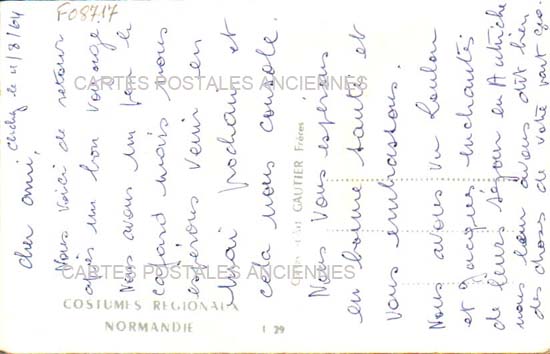 F08717
Clichy le 4/8/64
Cher ami,
Nous voici de retour
après un bon voyage
Nous avons un peu le
cafard mais nous
espérons venir en
Mai prochain et
cela nous console.
Nous vous espérons
en bonne santé et
Vous embrassons.
Nous avons vu Loulou
et Jacques enchantés
de leur séjour en Autriche
nous leur avons dit bien
des choses de votre part
CARTES POSTALES ANCIENNES
CARTES POSTALES ANCIENNES
GAUTIER Frères
COSTUMES REGIONAUX
NORMANDIE
1 29